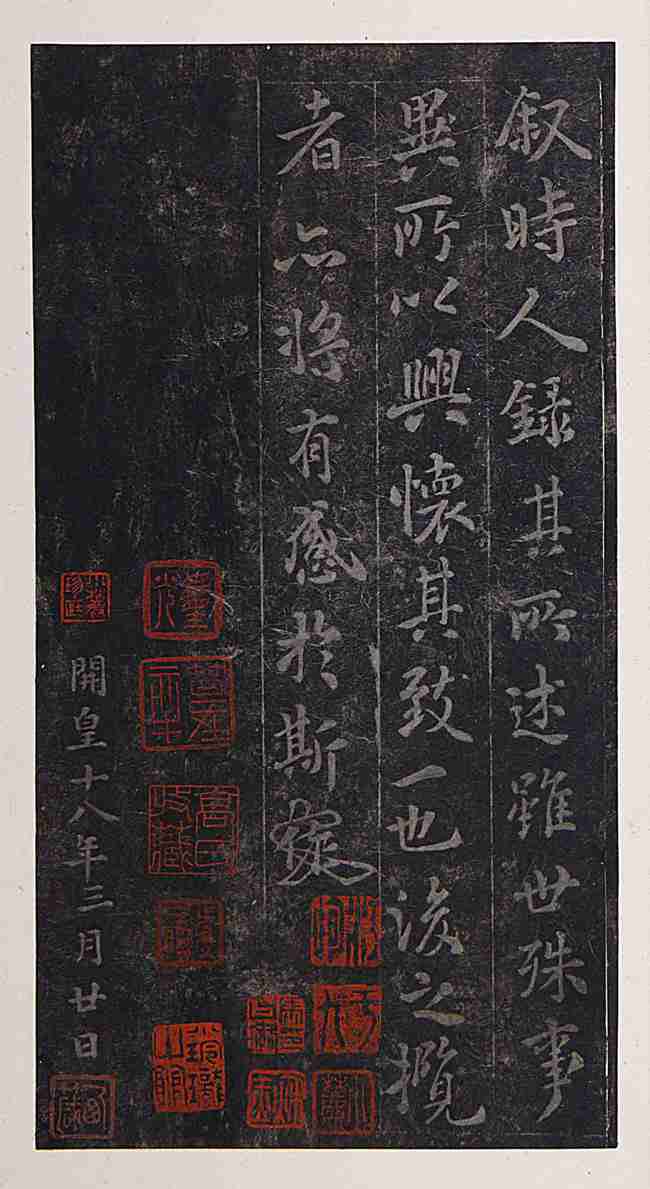 叙時人録其所述雖世殊事
異所以興懷其致一也後之攬
者亦將有感於斯文
開皇十八年三月廿日